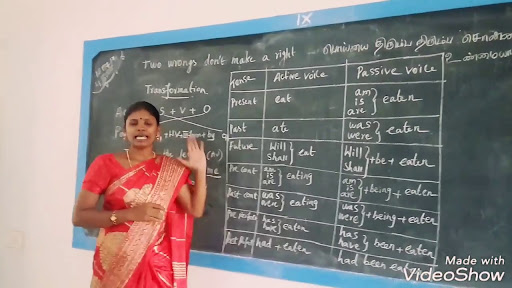 IX
Two wrongs don't make a right - பொய்யை திருப்ப திருப்ப
Transformation
S + V + O
Tense Active voice Passive voice
Present eat am is are } eaten
Past ate was were } eaten
Future Will Shall } eat Will Shall } + be + eaten
Pre cont am is are } eating am is are } + being + eaten
Past cont was were } eating was were } + being + eaten
Pre perfect has have } eaten has have } been + eaten
Past Perf had + eaten had been eaten
Made with
VideoShow